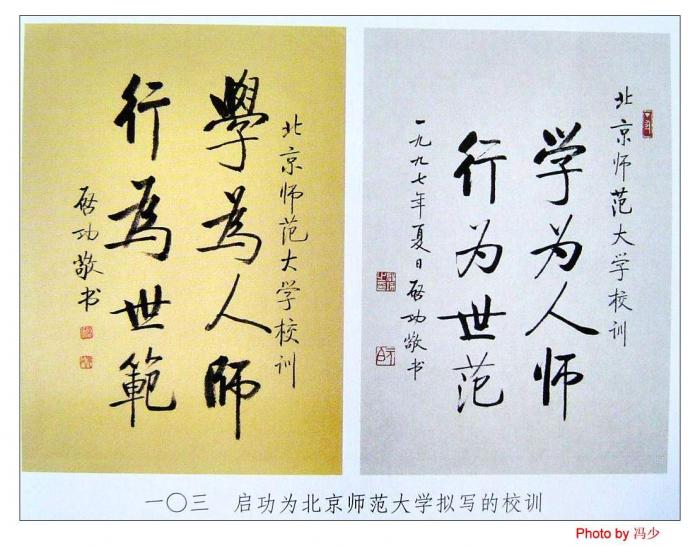 北京师范大学校训
學為人師
行為世範
啟功敬书
北京师范大学校训
学为人师
行为世范
一九九七年夏日启功敬书
一〇三 启功为北京师范大学拟写的校训
Photo by 冯少